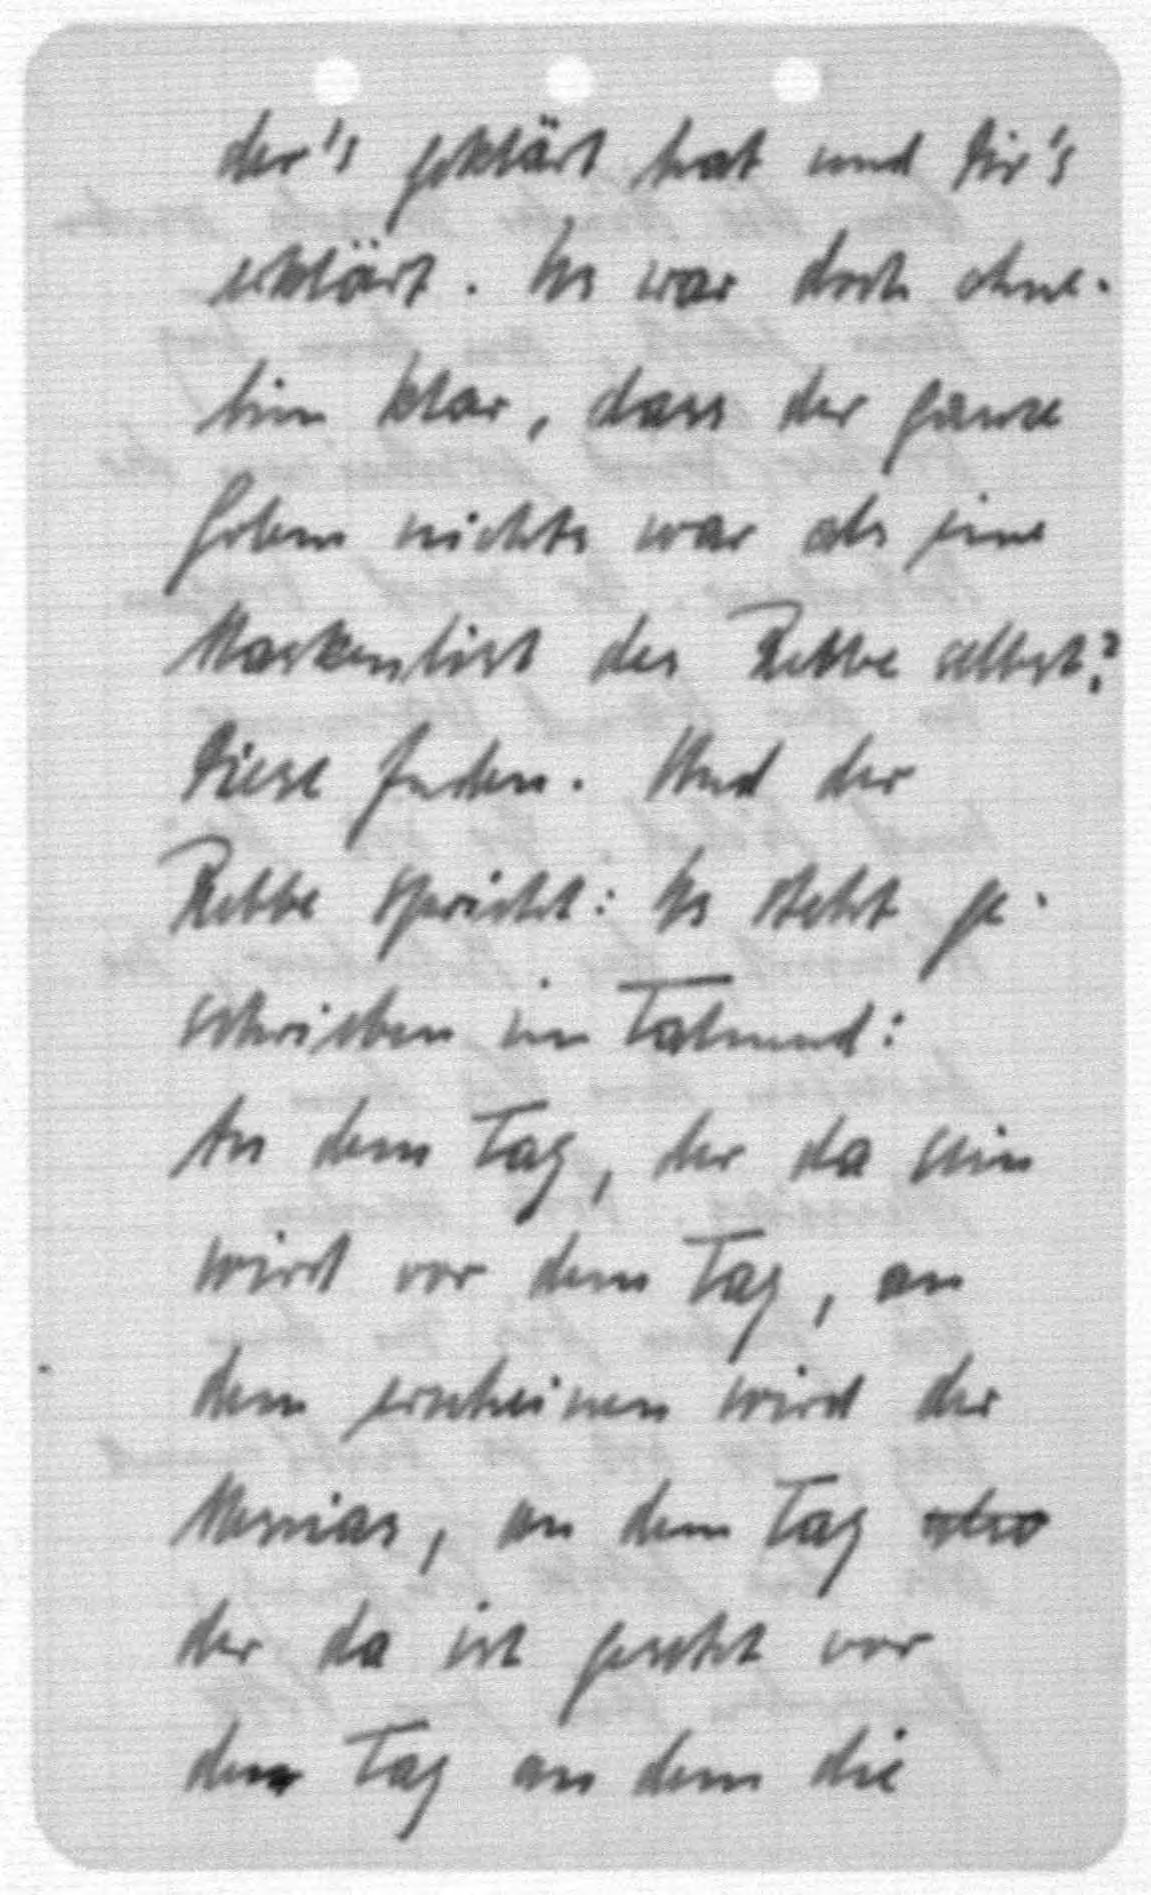 der's geklärt hat und dir's
erklärt. Es war doch ohne-
hin klar, dass der ganze
Golem nichts war als eine
Maskenlist des Rebbe selbst?
Diese Juden. Und der
Rebbe spricht: Es steht ge-
schrieben im Talmud:
An dem Tag, der da sein
wird vor dem Tag, an
dem erscheinen wird der
Messias, an dem Tag also
der da ist gesetzt vor
dem Tag an dem die